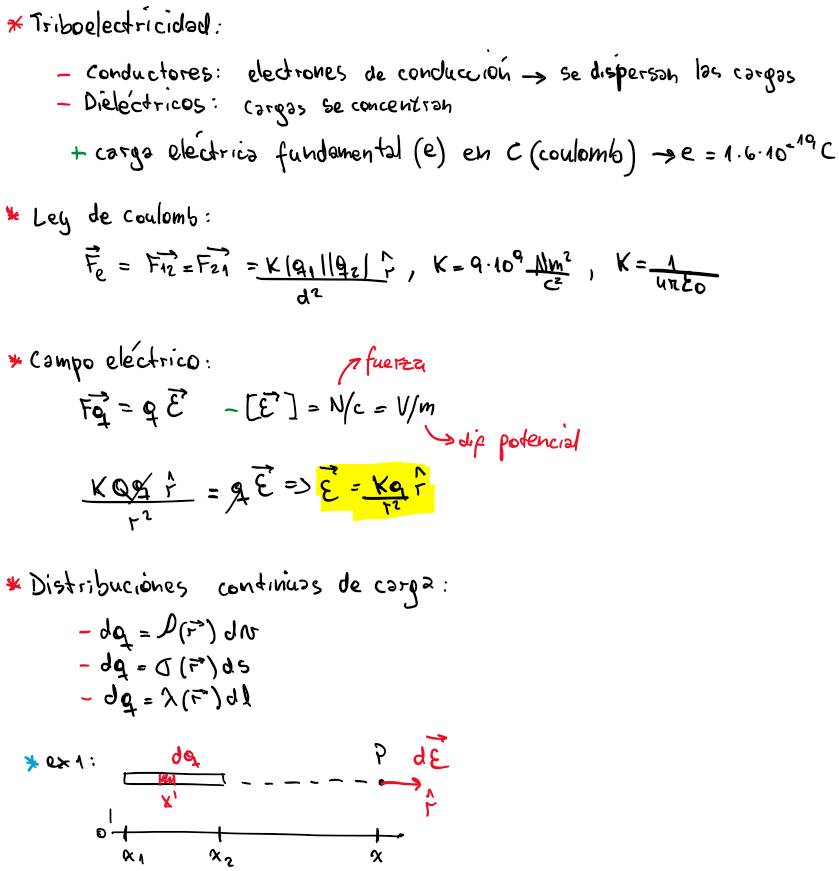 * Triboelectricidad:
- Conductores: electrones de conducción → se dispersan las cargas
- Dieléctricos: cargas se concentran
+ carga eléctrica fundamental (e) en C (coulomb) → e = 1.6·10⁻¹⁹ C
* Ley de Coulomb:
F⃗e = F⃗12 = F⃗21 = K|q₁||q₂| r̂ / d² , K = 9·10⁹ Nm²/C² , K = 1/4πε0
* Campo eléctrico:
fuerza
F⃗q = q ℰ⃗ - [ℰ⃗] = N/c = V/m
dif potencial
KQq r̂ / r² = q ℰ⃗ => ℰ⃗ = Kq/r² r̂
* Distribuciónes continuas de carga:
- dq = ρ(r⃗) dv
- dq = σ(r⃗) ds
- dq = λ(r⃗) dl
* ex 1: dq P dℰ⃗
x' r̂
0
x₁ x₂ x